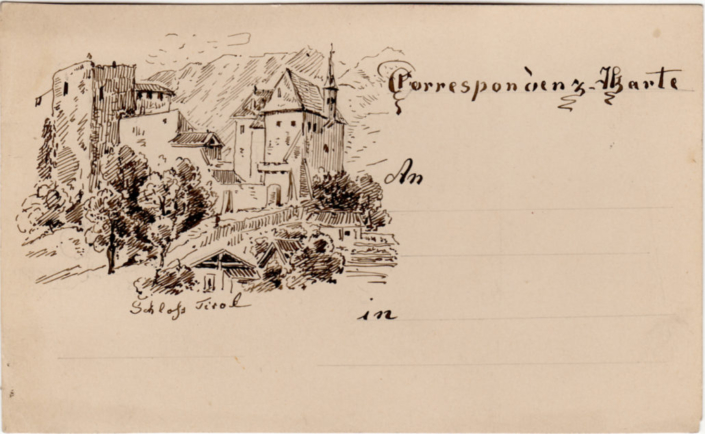 Correspondenz-Karte
An
in
Schloſs Tirol